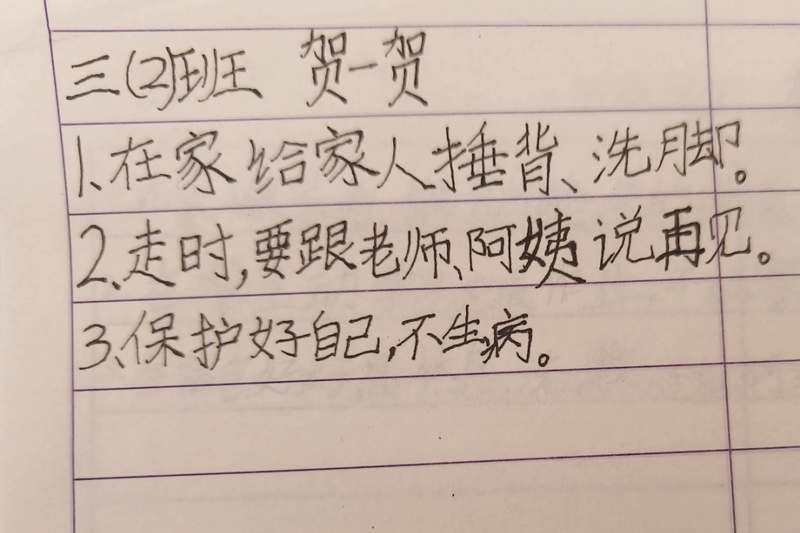 三(2)班 贺一贺
1、在家给家人捶背、洗脚。
2、走时,要跟老师、阿姨说再见。
3、保护好自己,不生病。